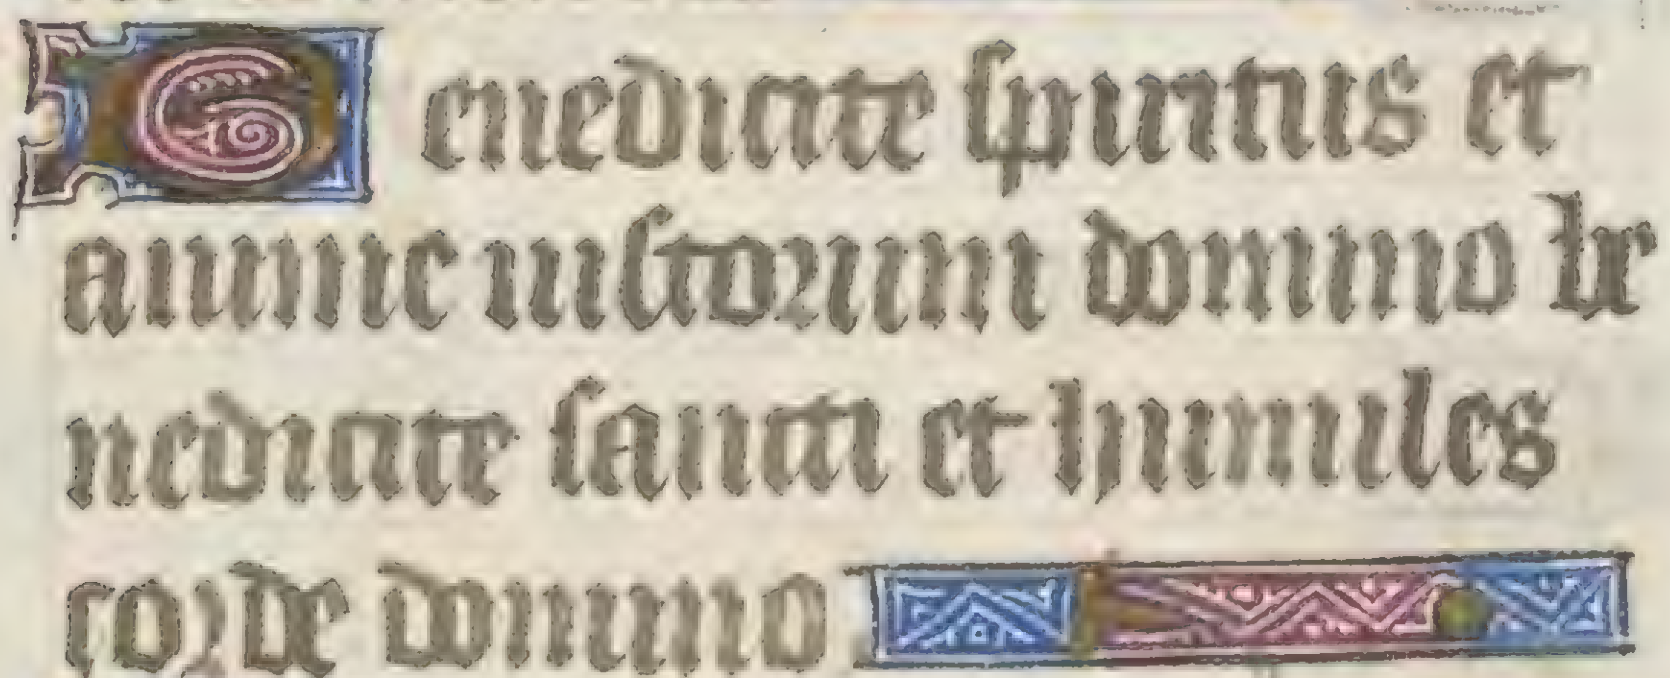 Benedicite spiritus et
anime iustorum domino be
nedicite sancti et humiles
corde domino